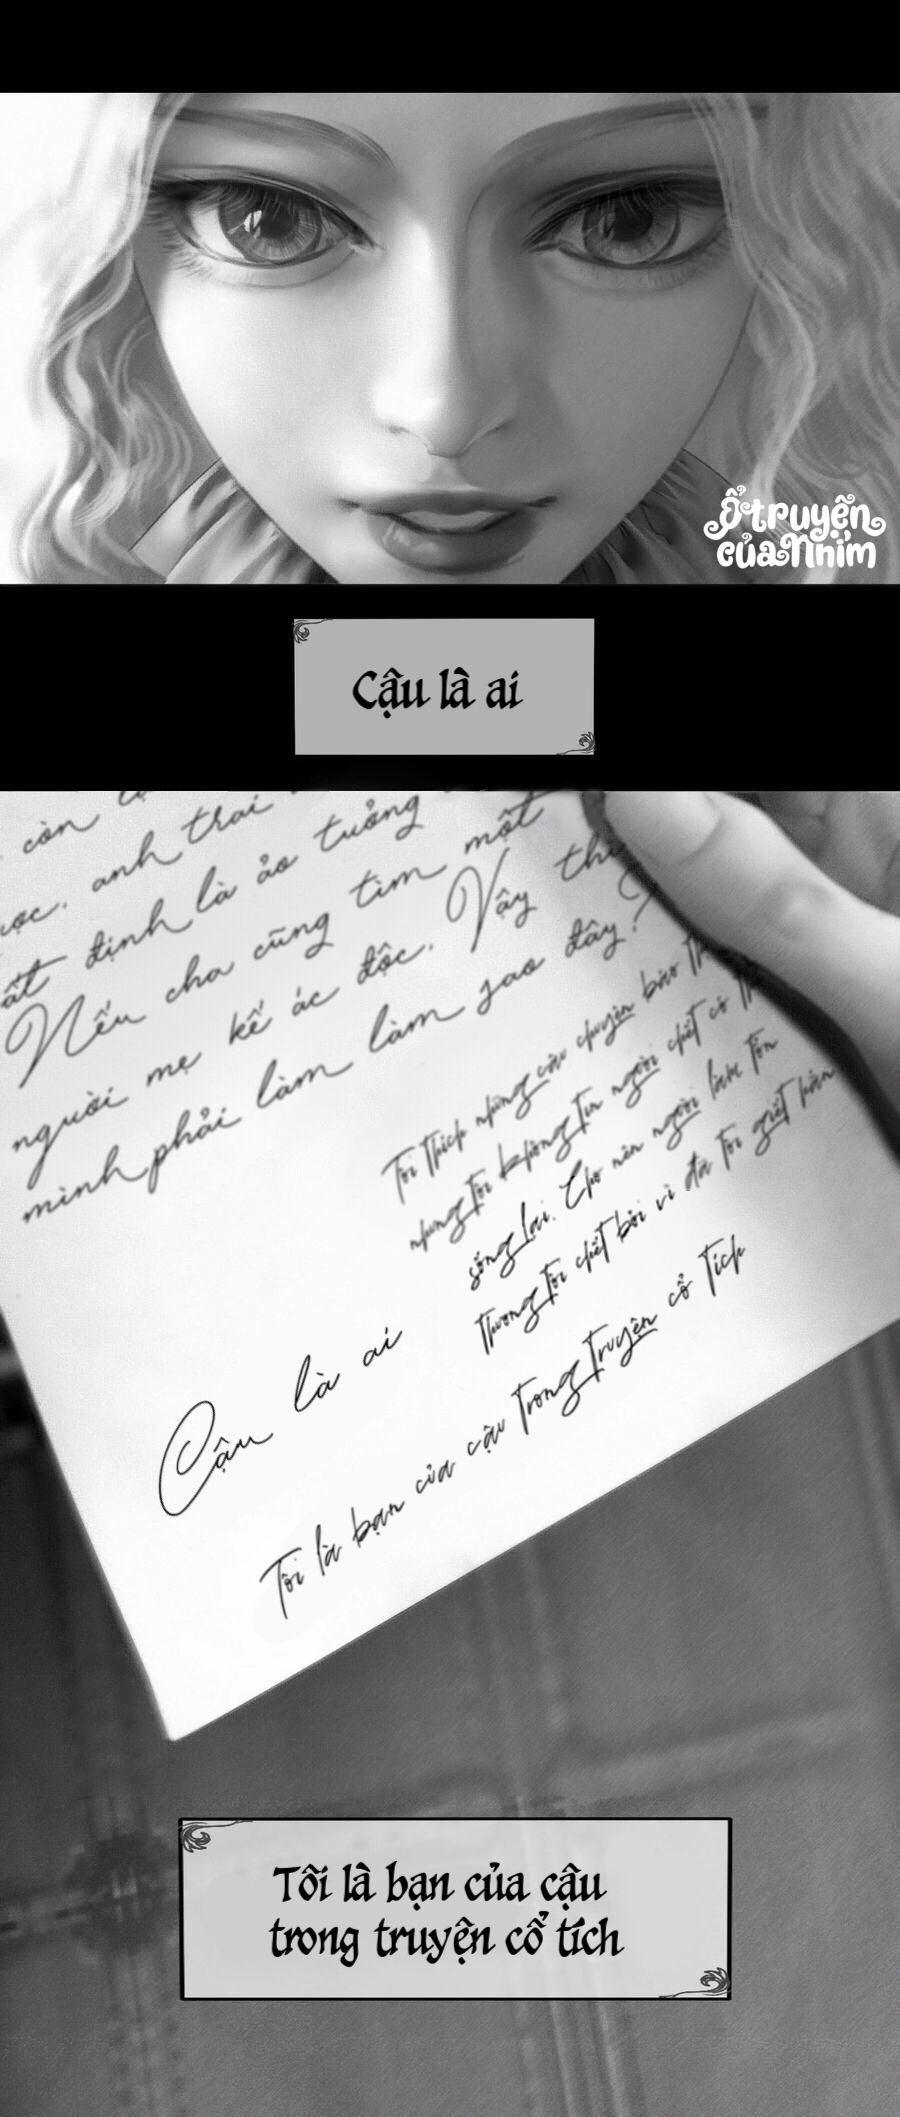 Ổ truyện
của Nhím
Cậu là ai
còn
ược. anh trai
ất định là ảo tưởng
Nếu cha cũng tìm một
người mẹ kế ác độc. Vậy thì
mình phải làm làm sao đây?
Tôi thích những câu chuyện báo th
nhưng tôi không tin người chết có th
sống lại. Cho nên người làm tổn
thương tôi chết bởi vì đã tôi giết hắn
Cậu là ai
Tôi là bạn của cậu trong truyện cổ tích
Tôi là bạn của cậu
trong truyện cổ tích